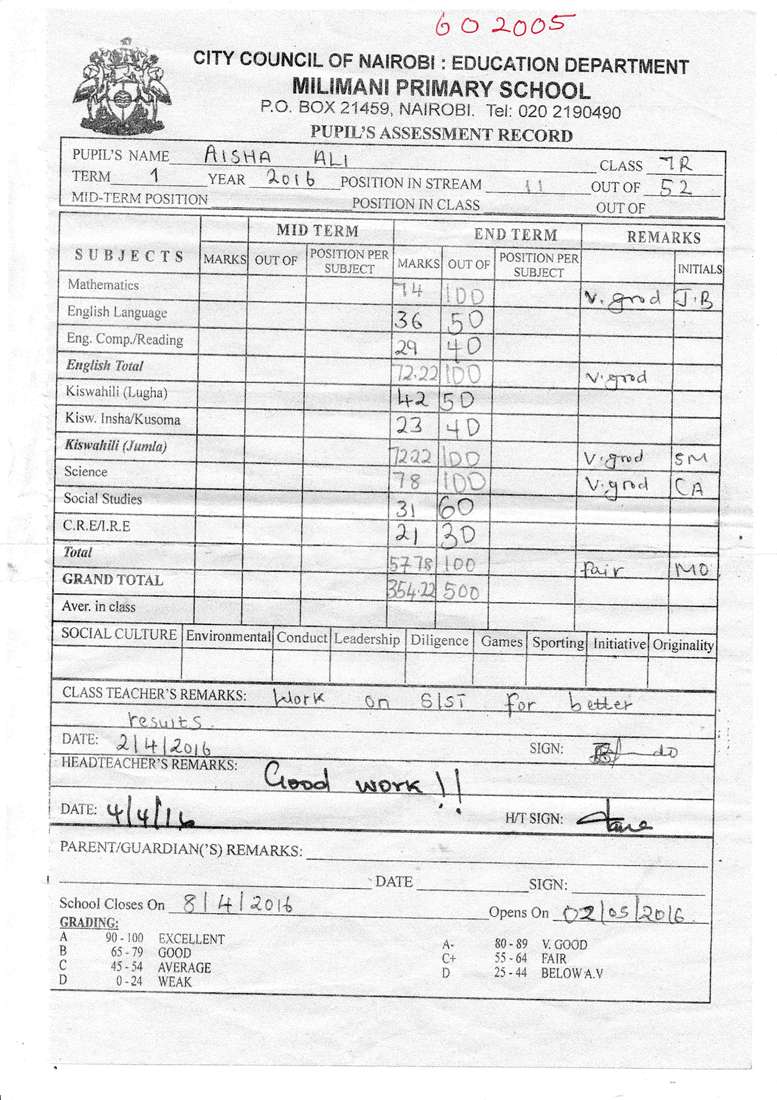 602005
CITY COUNCIL OF NAIROBI : EDUCATION DEPARTMENT
MILIMANI PRIMARY SCHOOL
P.O. BOX 21459, NAIROBI. Tel: 020 2190490
PUPIL'S ASSESSMENT RECORD
PUPIL'S NAME AISHA ALI CLASS 7R
TERM 1 YEAR 2016 POSITION IN STREAM 11 OUT OF 52
MID-TERM POSITION POSITION IN CLASS OUT OF
SUBJECTS MID TERM END TERM REMARKS
MARKS OUT OF POSITION PER SUBJECT MARKS OUT OF POSITION PER SUBJECT INITIALS
Mathematics 74 100 V. good J.B
English Language 36 50
Eng. Comp./Reading 29 40
English Total 72.22 100 V.good
Kiswahili (Lugha) 42 50
Kisw. Insha/Kusoma 23 40
Kiswahili (Jumla) 7222 100 V.good SM
Science 78 100 V.good CA
Social Studies 31 60
C.R.E/I.R.E 21 30
Total 5778 100 fair MO
GRAND TOTAL 354.22 500
Aver. in class
SOCIAL CULTURE Environmental Conduct Leadership Diligence Games Sporting Initiative Originality
CLASS TEACHER'S REMARKS: Work on S/ST for better
results.
DATE: 2/4/2016 SIGN:
HEADTEACHER'S REMARKS: Good work!!
DATE: 4/4/16 H/T SIGN:
PARENT/GUARDIAN('S) REMARKS:
DATE SIGN:
School Closes On 8/4/2016 Opens On 02/05/2016
GRADING:
A 90 - 100 EXCELLENT A- 80 - 89 V. GOOD
B 65 - 79 GOOD C+ 55 - 64 FAIR
C 45 - 54 AVERAGE D 25 - 44 BELOW A.V
D 0 - 24 WEAK